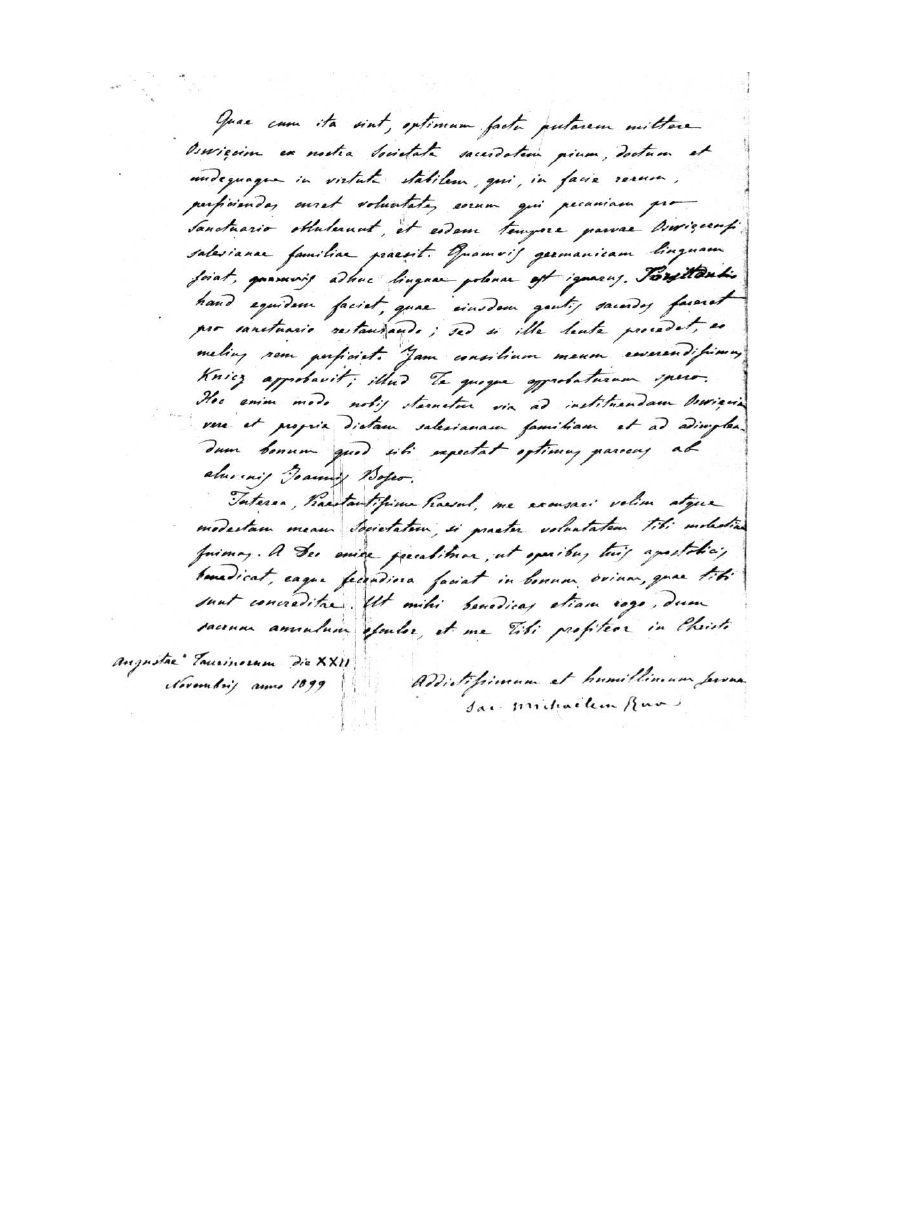 Quae cum ita sint, optimum factu putarem mittere
Oswięcim ex nostra Societate sacerdotem pium, doctum et
undequaque in virtute stabilem, qui, in facie rerum,
perficiendas curet voluntates eorum qui pecuniam pro
Sanctuario obtulerunt, et eodem tempore parvae Oswięcensi
salesianae familiae praesit. Quamvis germanicam linguam
sciat, quamvis adhuc linguae polonae est ignarus.
haud equidem faciet, quae eiusdem gentis sacerdos faceret
pro sanctuario restaurando; sed si ille lente procedet, eo
melius rem perficiet. Jam consilium meum reverendissimus
Knicz approbavit; illud Te quoque approbaturum spero.
Hoc enim modo nobis sternetur via ad instituendam Oswięcim
vere et proprie dictam salesianam familiam et ad adimplen-
dum bonum quod sibi expectat optimus parecus ab
alumnis Joannis Bosco.
Interea, Praestantissime Praesul, me excusari velim atque
modestam meam Societatem, si praeter voluntatem tibi molestiae
fuimus. A Deo enixe precabimur, ut operibus tuis apostolicis
benedicat, eaque fecundiora faciat in bonum ovium, quae tibi
sunt concreditae. Ut mihi benedicas etiam rogo, dum
sacrum annulum osculor, et me Tibi profiteor in Christo
Augustae Taurinorum die XXII
Novembris anno 1899
Addictissimum et humillimum servum
Sac. Michaëlem Rua